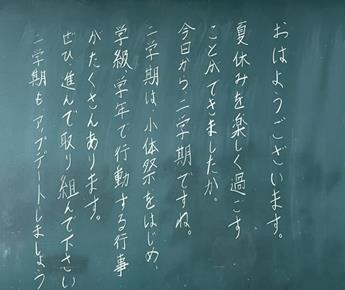 おはようございます。
夏休みを楽しく過こす
ことができましたか。
今日から二学期ですね。
二学期は、小体祭をはじめ、
学級、学年で行動する行事
がたくさんあります。
ぜひ進んで取り組んで下さい
二学期もアップデートしましょう